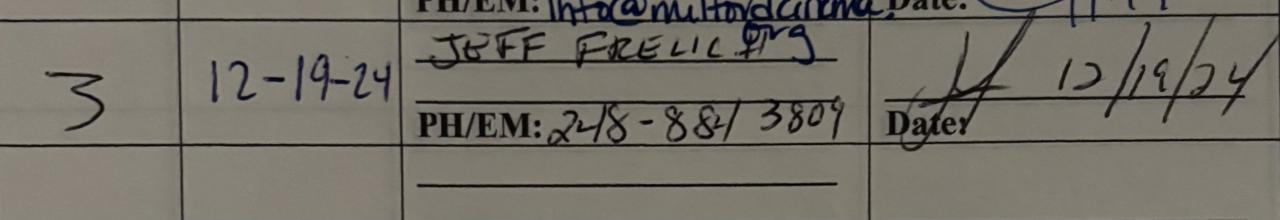 PH/EM: info@milfordcinema. Date:
org
3 12-19-24 JEFF FRELIC 12/19/24
PH/EM: 248-881 3809 Date: